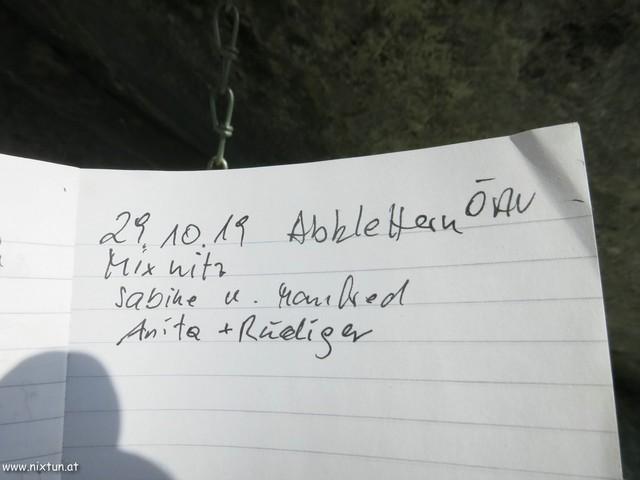 29.10.19 Abklettern ÖAV
Mixnitz
Sabine u. Manfred
Anita + Rüdiger
www.nixtun.at